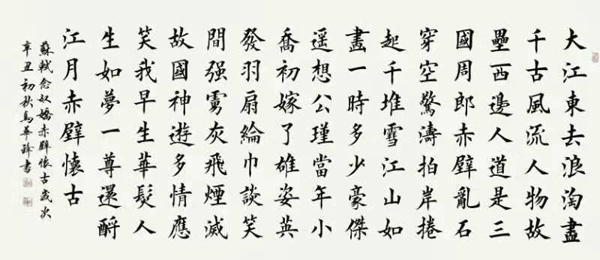 大江東去浪淘盡
千古風流人物故
壘西邊人道是三
國周郎赤壁亂石
穿空驚濤拍岸捲
起千堆雪江山如
畫一時多少豪傑
遥想公瑾當年小
喬初嫁了雄姿英
發羽扇綸巾談笑
間强虜灰飛煙滅
故國神遊多情應
笑我早生華髮人
生如夢一尊還酹
江月赤壁懷古
蘇軾念奴嬌赤壁懷古歲次
辛丑初秋馬華書